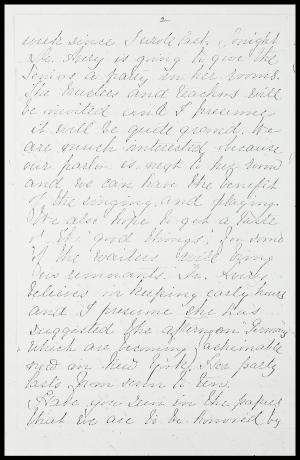 2
week since I wrote last. Tonight
Dr. Avery is going to give the
Seniors a party in her rooms.
The trustees and teachers will
be invited and I presume
it will be quite grand. We
are much interested because
our parlor is next to her room
and we can have the benefit
of the singing and playing.
We also hope to get a taste
of the "good things", for some
of the waiters will bring
us remnants. Dr. Avery
believes in keeping early hours
and I presume she has
suggested the afternoon
which are becoming fashionable
now in New York. Her party
lasts from seven to ten.
Have you seen in the papers
that we are to be honored by